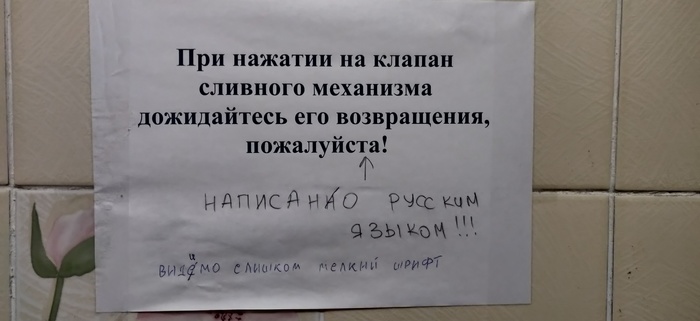 При нажатии на клапан
сливного механизма
дожидайтесь его возвращения,
пожалуйста!
НАПИСАННО РУССКИМ
ЯЗЫКОМ!!!
ВИДИМО СЛИШКОМ МЕЛКИЙ ШРИФТ